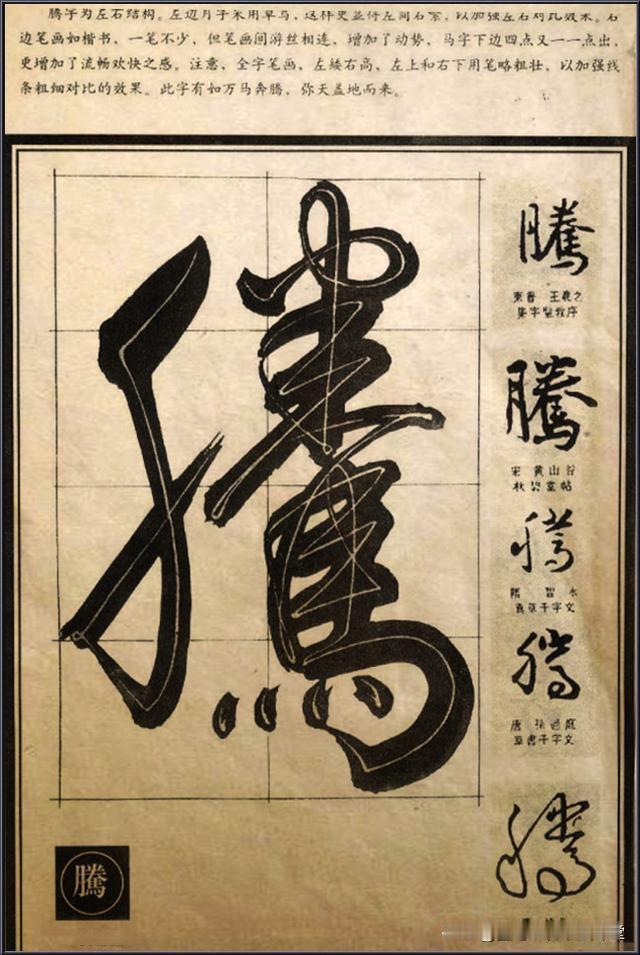 腾字为左右结构。左边月字采用草写，这样更显得左简右繁，以加强左右对比效果。右
边笔画如楷书、一笔不少，但笔画间游丝相连，增加了动势，马字下边四点又一一点出，
更增加了流畅欢快之感。注意，全字笔画，左矮右高、左上和右下用笔略粗壮，以加强线
条粗细对比的效果。此字有如万马奔腾，弥天盖地而来。
騰
騰
東晋 王羲之
集字聖教序
騰
宋 黄山谷
騰
隋 智永
真草千字文
騰
草書千字文
騰
騰